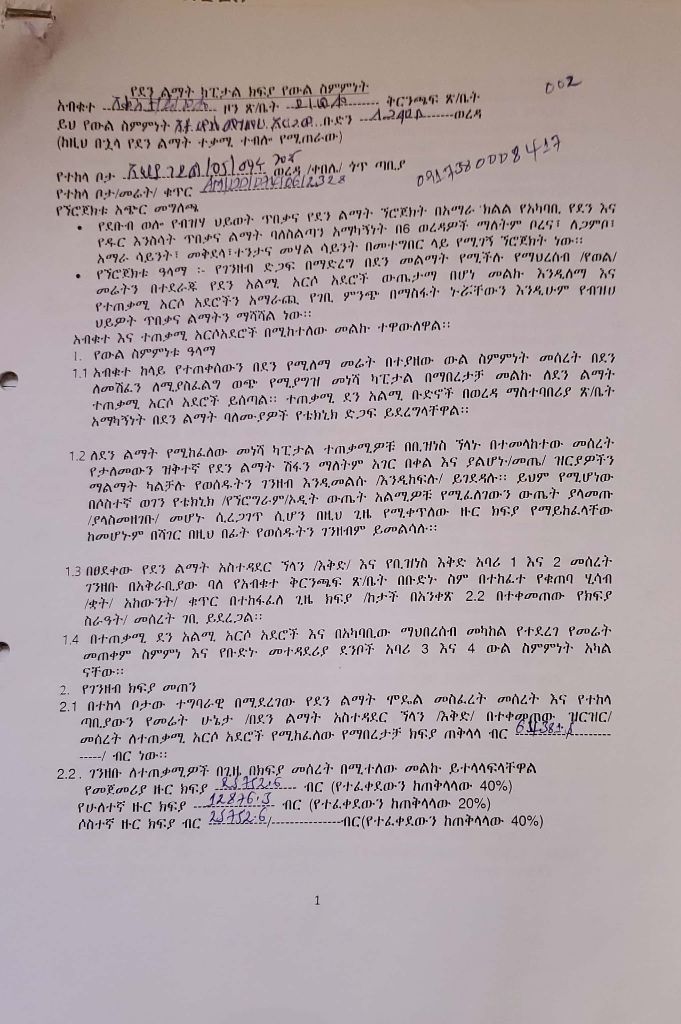 የደን ልማት ክፒታል ክፍያ የውል ስምምነት
002
አብቁተ ዞን ጽ/ቤት ቅርንጫፍ ጽ/ቤት
ይህ የውል ስምምነት ቡድን ወረዳ
(ከዚህ በኋላ የደን ልማት ተቃሚ ተብሎ የሚጠራው)
የተከላ ቦታ ወረዳ /ቀበሌ/ ጎጥ ጣቢያ
0917380008417
የተከላ ቦታ/መሬት/ ቁጥር
የኘሮጀክቱ አጭር መግለጫ
• የደቡብ ወሎ የብዝሃ ህይወት ጥበቃና የደን ልማት ኘሮጀክት በአማራ ክልል የአካባቢ የደን እና
የዱር እንስሳት ጥበቃና ልማት ባለስልጣን አማካኝነት በ6 ወረዳዎች ማለትም ቦረና፣ ለጋምቦ፣
አማራ ሳይንት፣ መቅደላ፣ተንታና መሃል ሳይንት በመተግበር ላይ የሚገኝ ኘሮጀክት ነው።
• የኘሮጀክቱ ዓላማ :- የገንዘብ ድጋፍ በማድረግ በደን መልማት የሚችሉ የማህረሰብ /የወል/
መሬትን በተደራጁ የደን አልሚ አርሶ አደሮች ውጤታማ በሆነ መልኩ እንዲለማ እና
የተጠቃሚ አርሶ አደሮችን አማራጪ የገቢ ምንጭ በማስፋት ኑሯቸውን እንዲሁም የብዝሀ
ህይዎት ጥበቃና ልማትን ማሻሻል ነው።
አብቁተ እና ተጠቃሚ አርሶአደሮች በሚከተለው መልኩ ተዋውለዋል።
1. የውል ስምምነቱ ዓላማ
1.1 አብቁተ ከላይ የተጠቀሰውን በደን የሚለማ መሬት በተያዘው ውል ስምምነት መሰረት በደን
ለመሸፈን ለሚያስፈልግ ወጭ የሚያግዝ መነሻ ካፒታል በማበረታቻ መልኩ ለደን ልማት
ተጠቃሚ አርሶ አደሮች ይሰጣል። ተጠቃሚ ደን አልሚ ቡድኖች በወረዳ ማስተባበሪያ ጽ/ቤት
አማካኝነት በደን ልማት ባለሙያዎች የቴክኒክ ድጋፍ ይደረግላቸዋል።
1.2 ለደን ልማት የሚከፈለው መነሻ ካፒታል ተጠቃሚዎቹ በቢዝነስ ኘላኑ በተመላከተው መሰረት
የታለመውን ዝቅተኛ የደን ልማት ሽፋን ማለትም አገር በቀል እና ያልሆኑ/መጤ/ ዝርያዎችን
ማልማት ካልቻሉ የወሰዱትን ገንዘብ እንዲመልሱ /እንዲከፍሉ/ ይገደዳሉ። ይህም የሚሆነው
በሶስተኛ ወገን የቴክኒክ /የኘሮግራም/ኦዲት ውጤት አልሚዎቹ የሚፈለገውን ውጤት ያላመጡ
/ያላስመዘገቡ/ መሆኑ ሲረጋገጥ ሲሆን በዚህ ጊዜ የሚቀጥለው ዙር ክፍያ የማይከፈላቸው
ከመሆኑም በሻገር በዚህ በፊት የወሰዱትን ገንዘብም ይመልሳሉ።
1.3 በፀደቀው የደን ልማት አስተዳደር ኘላን /እቅድ/ እና የቢዝነስ እቅድ አባሪ 1 እና 2 መሰረት
ገንዘቡ በአቅራቢያው ባለ የአብቁተ ቅርንጫፍ ጽ/ቤት በቡድኑ ስም በተከፈተ የቁጠባ ሂሳብ
/ቋት/ አካውንት/ ቁጥር በተከፋፈለ ጊዜ ክፍያ /ከታች በአንቀጽ 2.2 በተቀመጠው የክፍያ
ስራዓት/ መሰረት ገቢ ይደረጋል።
1.4 በተጠቃሚ ደን አልሚ አርሶ አደሮች እና በአካባቢው ማህበረሰብ መካከል የተደረገ የመሬት
መጠቀም ስምምነነ እና የቡድኑ መተዳደሪያ ደንቦች አባሪ 3 እና 4 ውል ስምምነት አካል
ናቸው።
2. የገንዘብ ክፍያ መጠን
2.1 በተከላ ቦታው ተግባራዊ በሚደረገው የደን ልማት ሞዴል መስፈረት መሰረት እና የተከላ
ጣቢያውን የመሬት ሁኔታ /በደን ልማት አስተዳደር ኘላን /እቅድ/ በተቀመጠው ዝርዝር/
መሰረት ለተጠቃሚ አርሶ አደሮች የሚከፈለው የማበረታቻ ክፍያ ጠቅላላ ብር
-----/ ብር ነው።
2.2. ገንዘቡ ለተጠቃሚዎች በጊዜ በክፍያ መሰረት በሚተለው መልኩ ይተላላፍላቸዋል
የመጀመሪያ ዙር ክፍያ 25752.6 ብር (የተፈቀደውን ከጠቅላላው 40%)
የሁለተኛ ዙር ክፍያ 12876.3 ብር (የተፈቀደውን ከጠቅላላው 20%)
ሶስተኛ ዙር ክፍያ ብር 25752.6/---------------ብር(የተፈቀደውን ከጠቅላላው 40%)
1